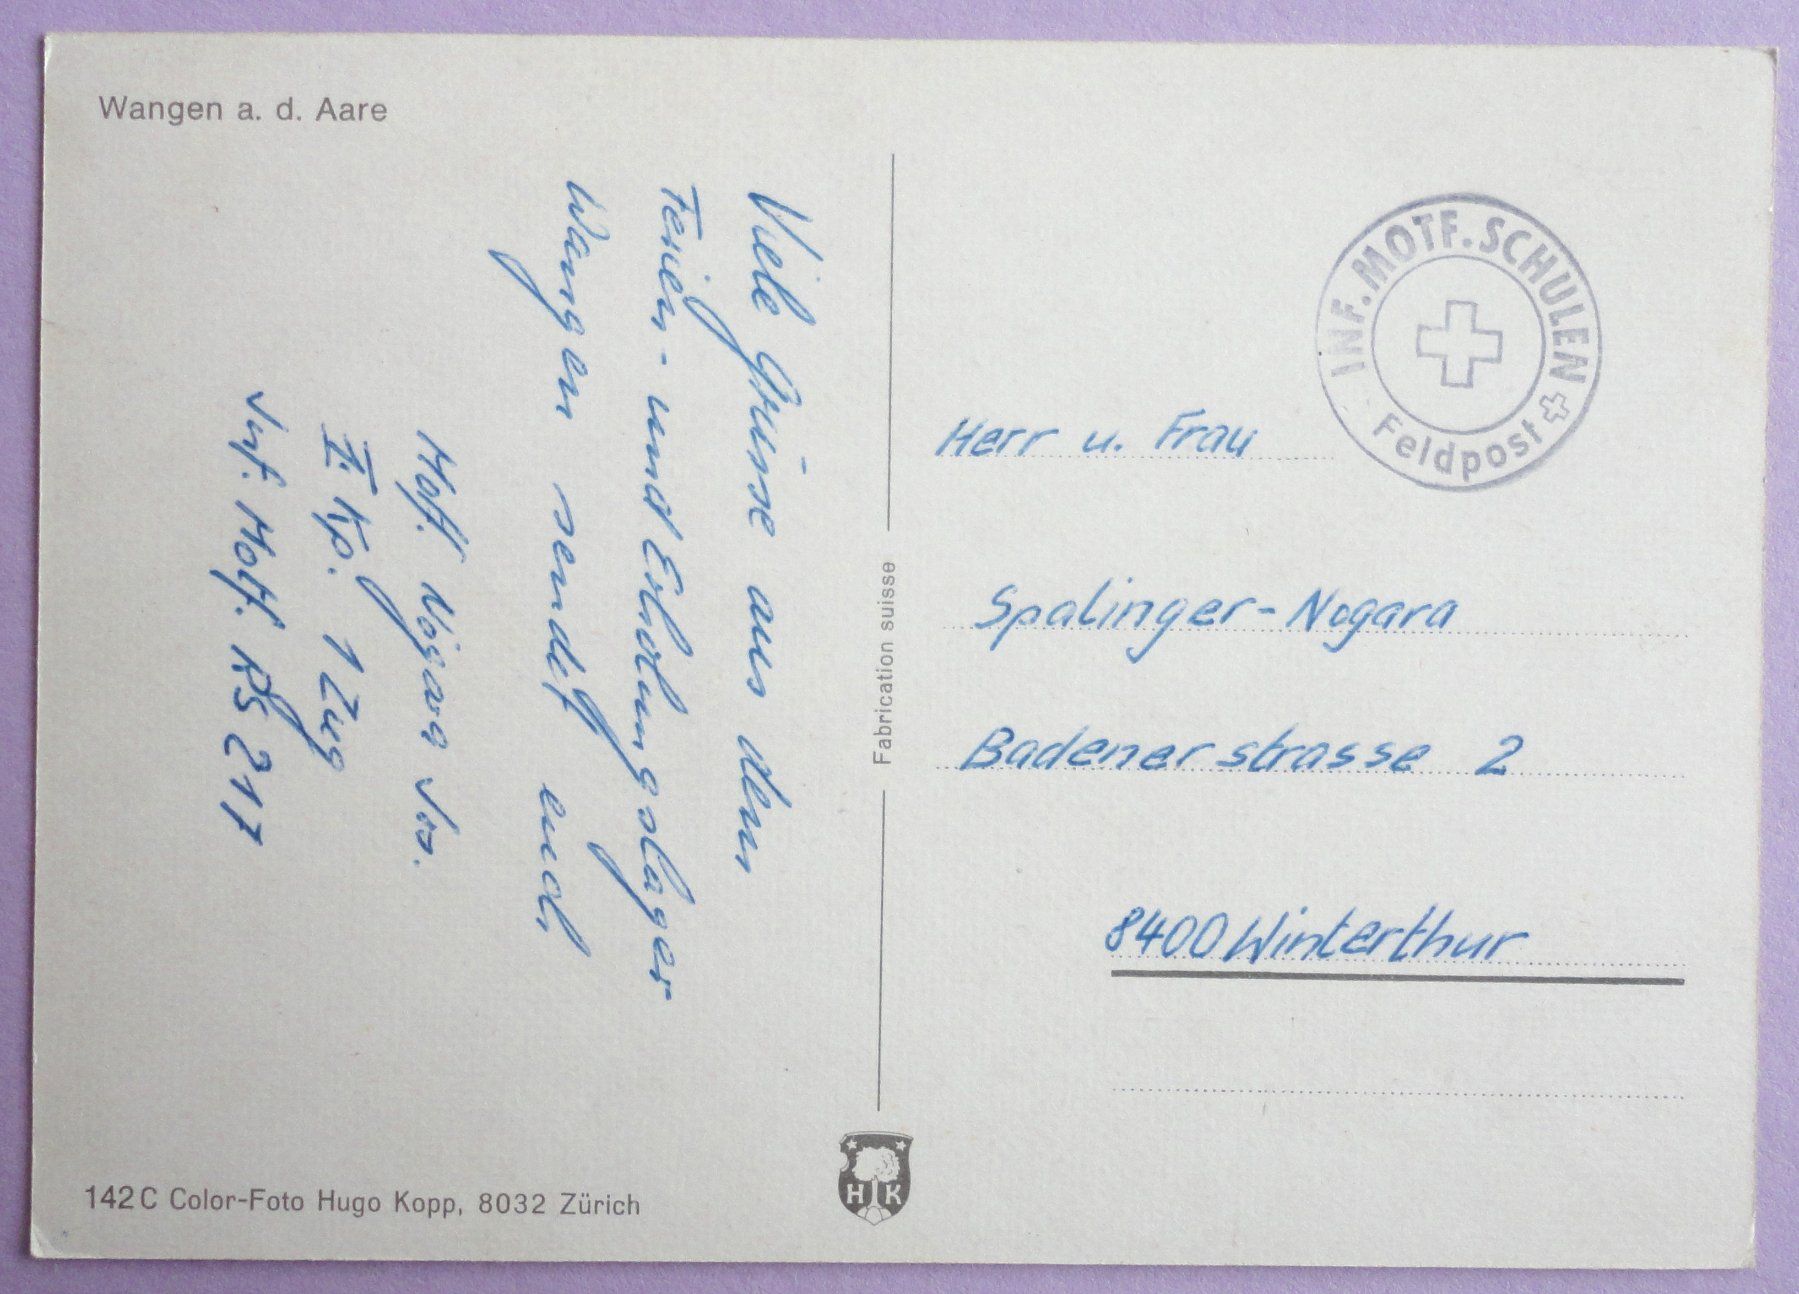 Wangen a. d. Aare
Viele Grüsse aus dem
Ferien- und Erholungslager
Wangen sendet euch
Motf. Nogara Jos.
II. Kp. 1 Zug
Inf. Motf. RS 217
142 C Color-Foto Hugo Kopp, 8032 Zürich
Fabrication suisse
HK
INF. MOTF. SCHULEN
Feldpost
Herr u. Frau
Spalinger-Nogara
Badenerstrasse 2
8400 Winterthur